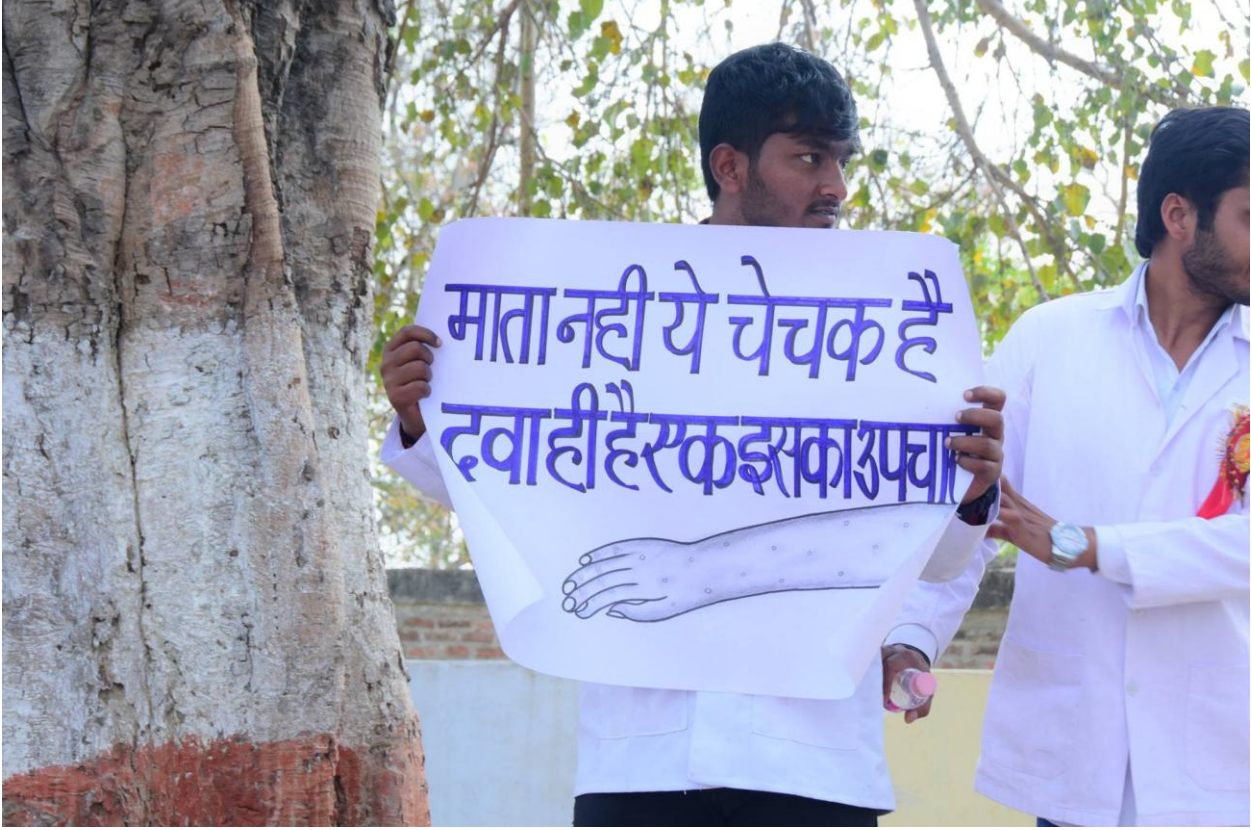 माता नही ये चेचक है
दवा ही है एक इसका उपचार